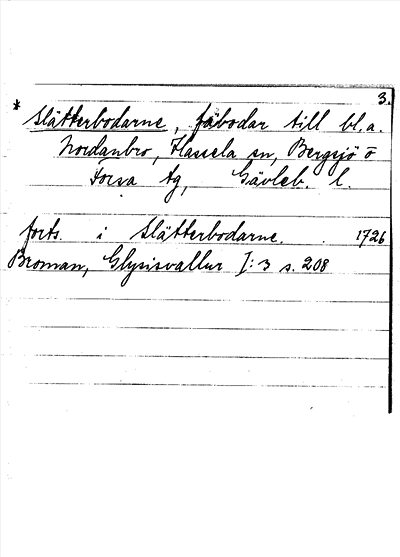 3.
* Slätterbodarne, fäbodar till bl.a.
Nordanbro, Hassela sn, Bergsjö o
Forsa tg, Gävleb. l.
forts. i Slätterbodarne. 1726
Broman, Glysisvallur I:3 s. 208